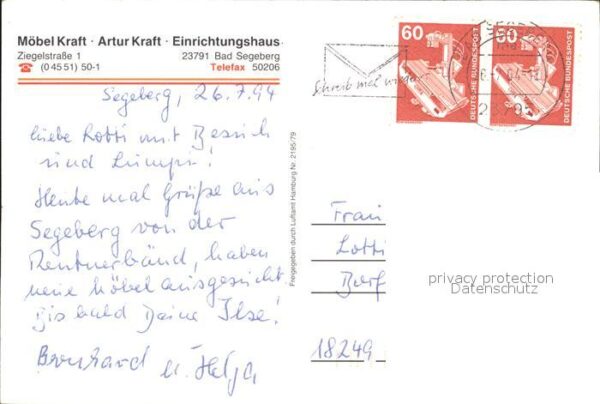 Möbel Kraft · Artur Kraft · Einrichtungshaus
Ziegelstraße 1 23791 Bad Segeberg
☎ (0 45 51) 50-1 Telefax 50206
Segeberg, 26.7.94
Liebe Lotti mit Besuch
und Lumpi!
Heute mal Grüße aus
Segeberg von der
Rentnerbänd, haben
neue Möbel ausgesucht.
Bis bald Deine Ilse!
Bernhard u. Helga
Freigegeben durch Luftamt Hamburg Nr. 2195/79
60
DEUTSCHE BUNDESPOST
60
DEUTSCHE BUNDESPOST
Schreib mal wieder
Frau
Lotti
18249
privacy protection
Datenschutz